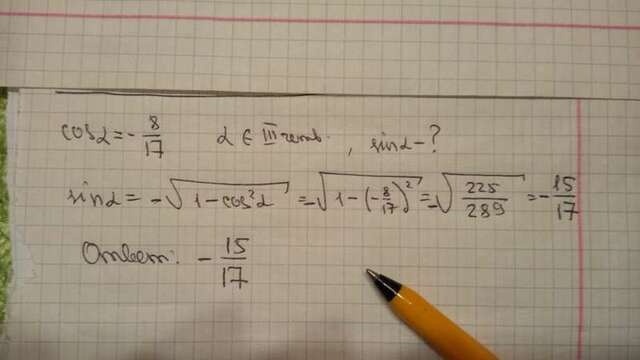 cosα = -8/17 α ∈ III четв., sinα - ?
sinα = -√(1 - cos²α) = -√(1 - (-8/17)²) = -√(225/289) = -15/17
Ответ: -15/17